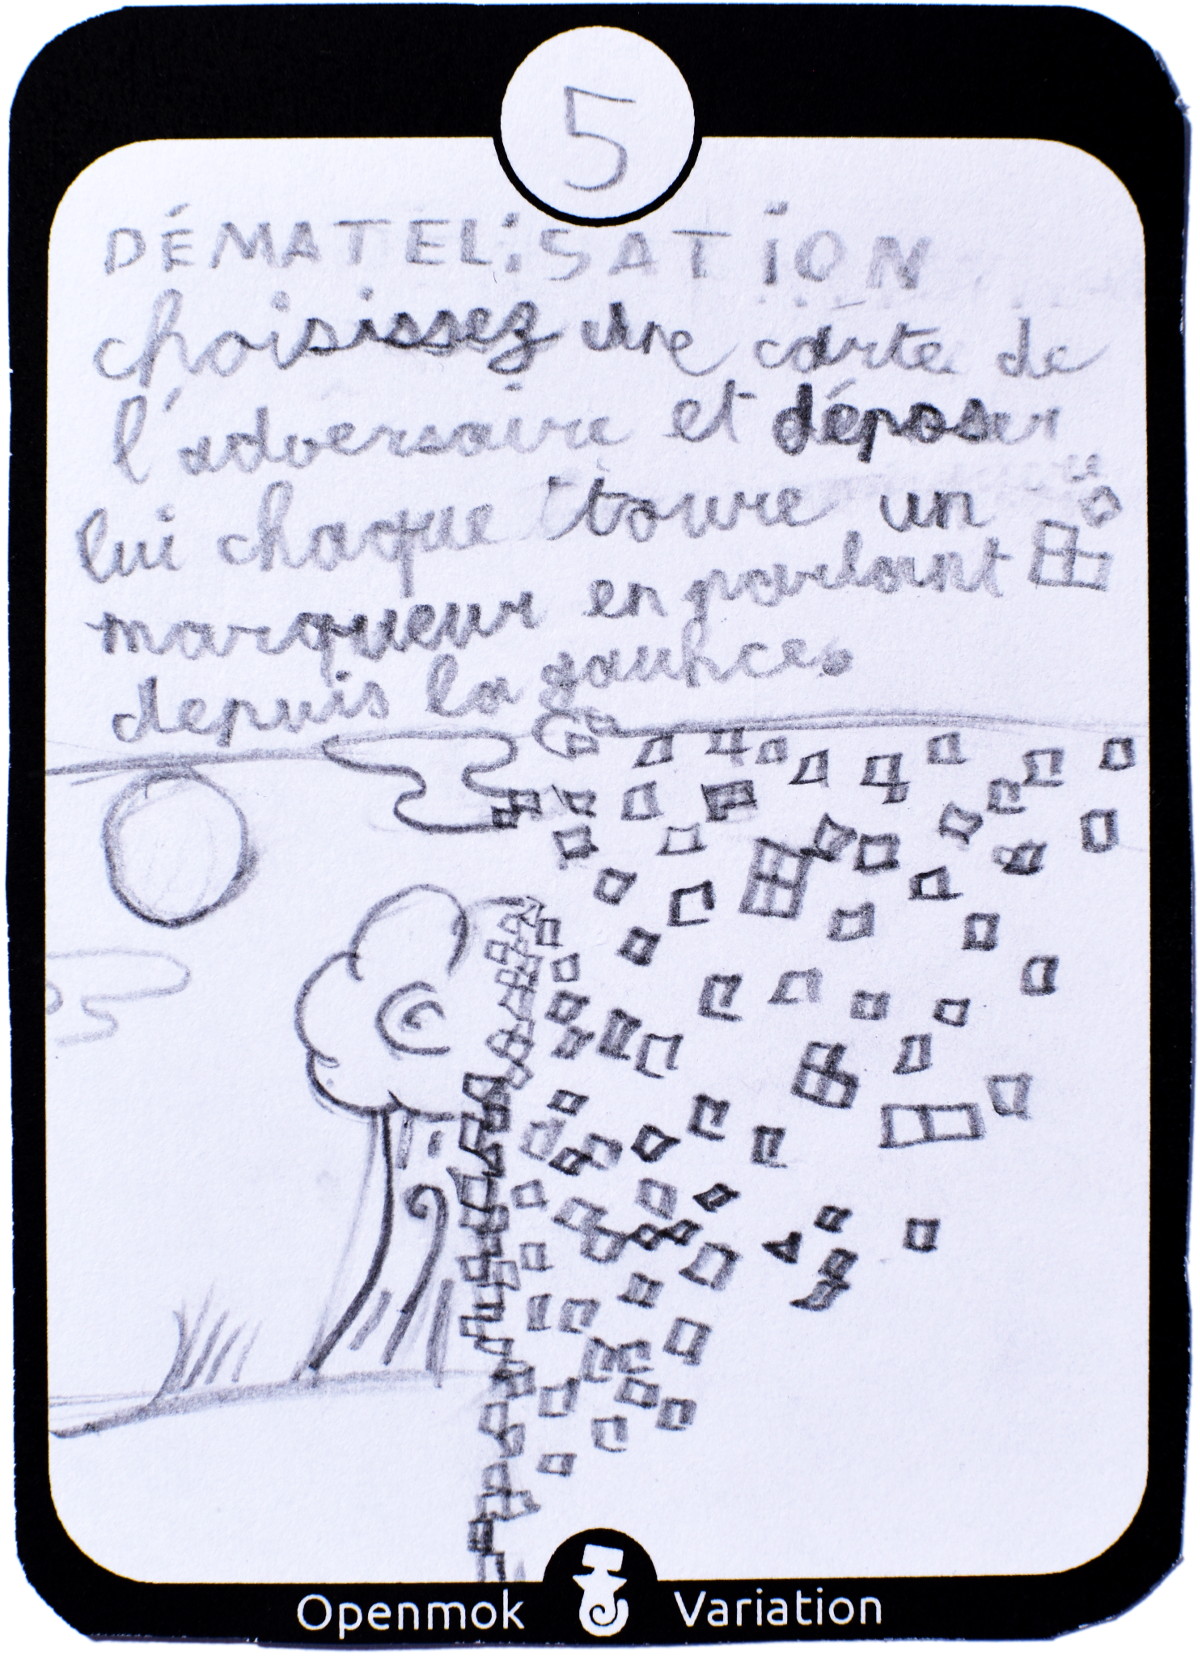 5
DÉMATELiSATiON
choisissez une carte de
l'adversaire et déposer
lui chaque toure un
marqueur en parlant
depuis la gauhce.
Openmok Variation